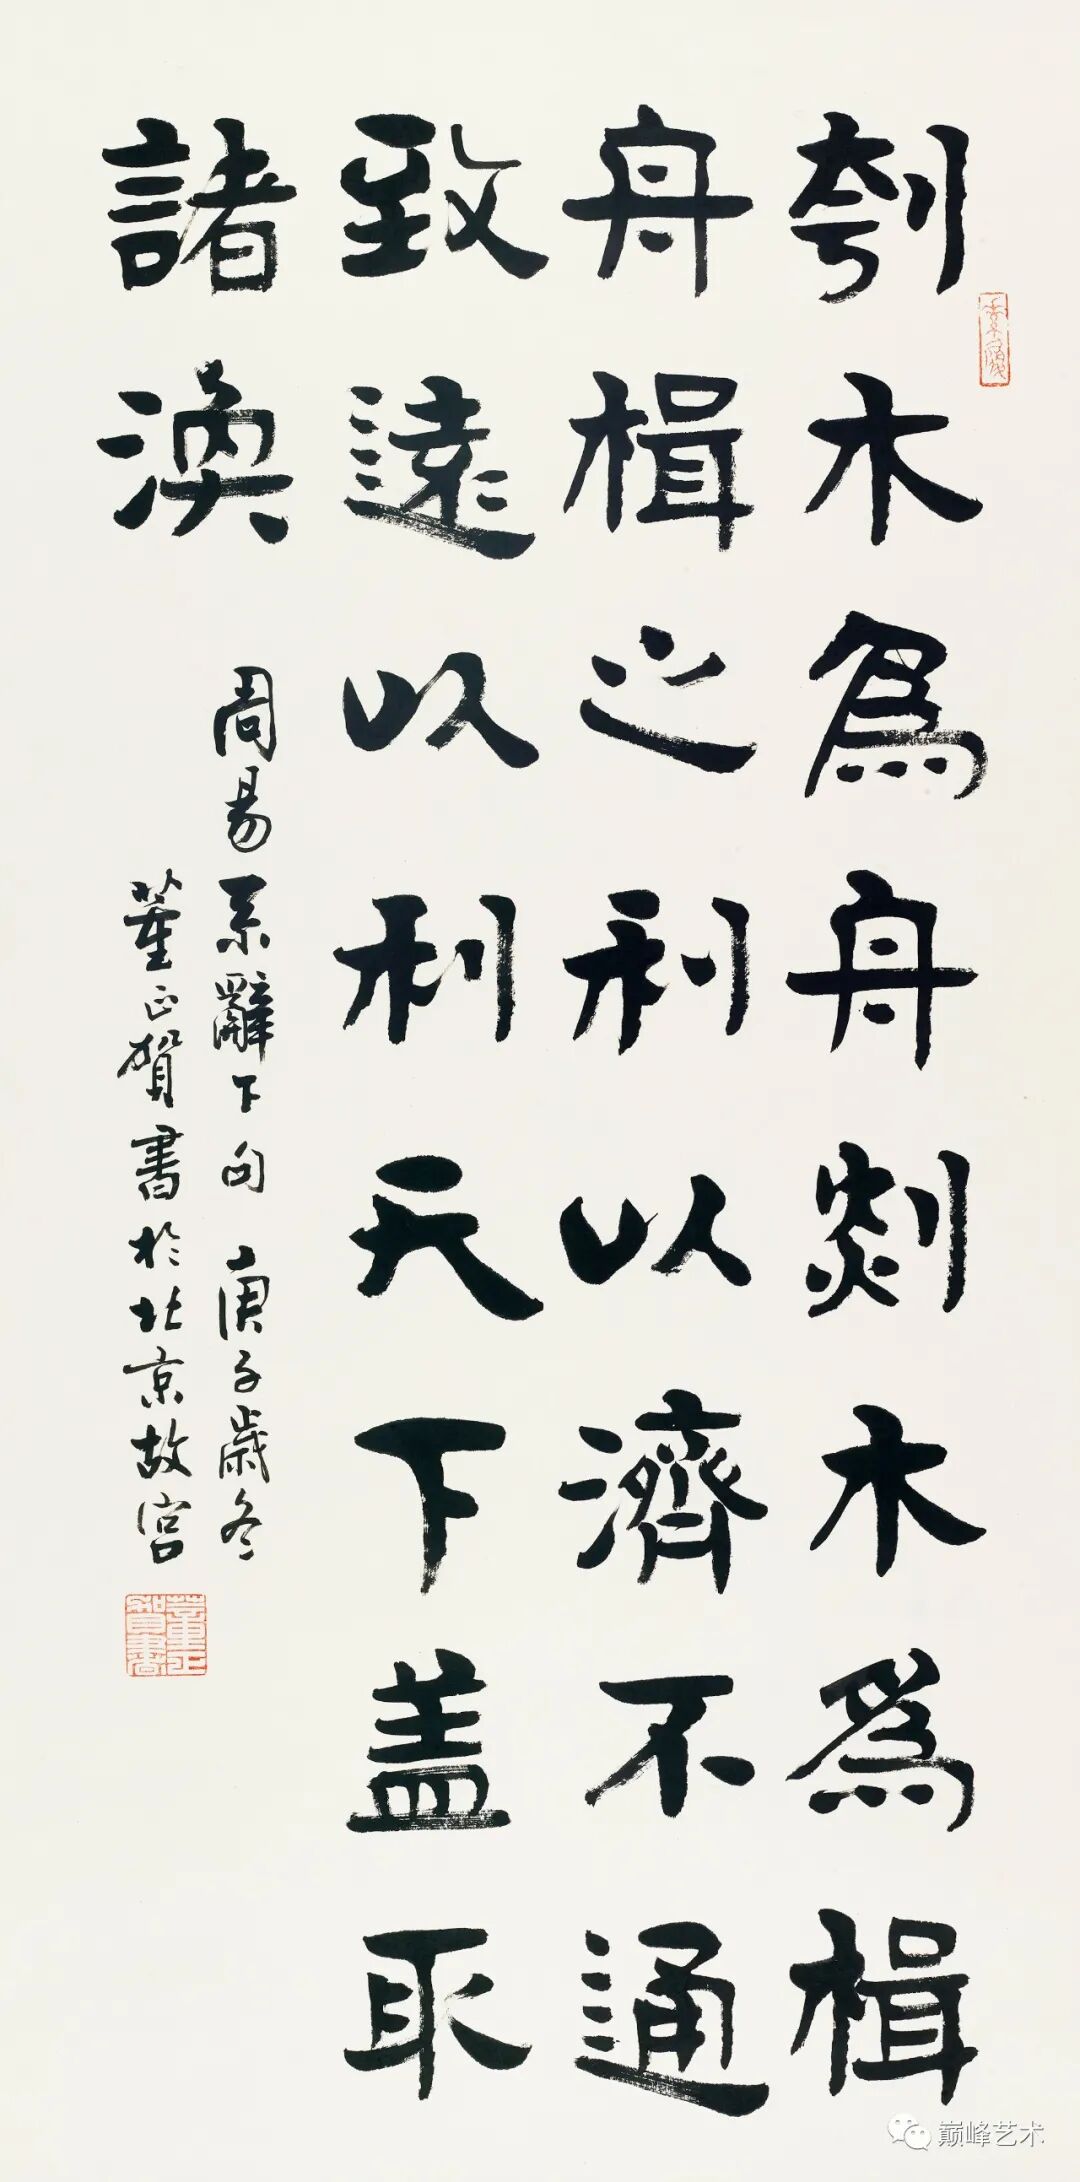 刳木為舟剡木為楫
舟楫之利以濟不通
致遠以利天下盖取
諸渙
周易系辭下句 庚子歲冬
董正賀書於北京故宮
董正賀書
巅峰艺术